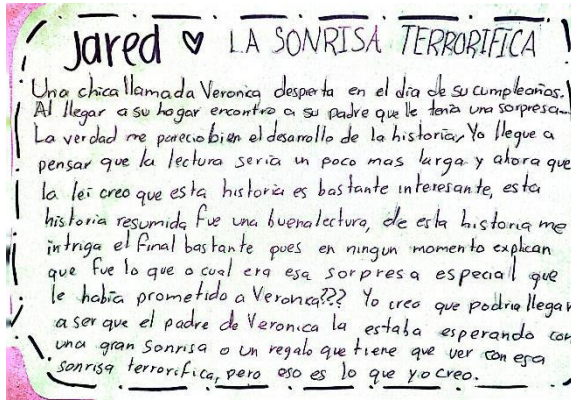 Jared ♡ LA SONRISA TERRORIFICA
Una chica llamada Veronica despierta en el dia de su cumpleaños.
Al llegar a su hogar encontro a su padre que le tenia una sorpresa...
La verdad me parecio bien el desarrollo de la historia, Yo llegue a
pensar que la lectura seria un poco mas larga y ahora que
la lei creo que esta historia es bastante interesante, esta
historia resumida fue una buena lectura, de esta historia me
intriga el final bastante pues en ningun momento explican
que fue lo que o cual era esa sorpresa especial que
le había prometido a Veronica??? Yo creo que podria llegar
a ser que el padre de Veronica la estaba esperando con
una gran sonrisa o un regalo que tiene que ver con esa
sonrisa terrorifica, pero eso es lo que yo creo.